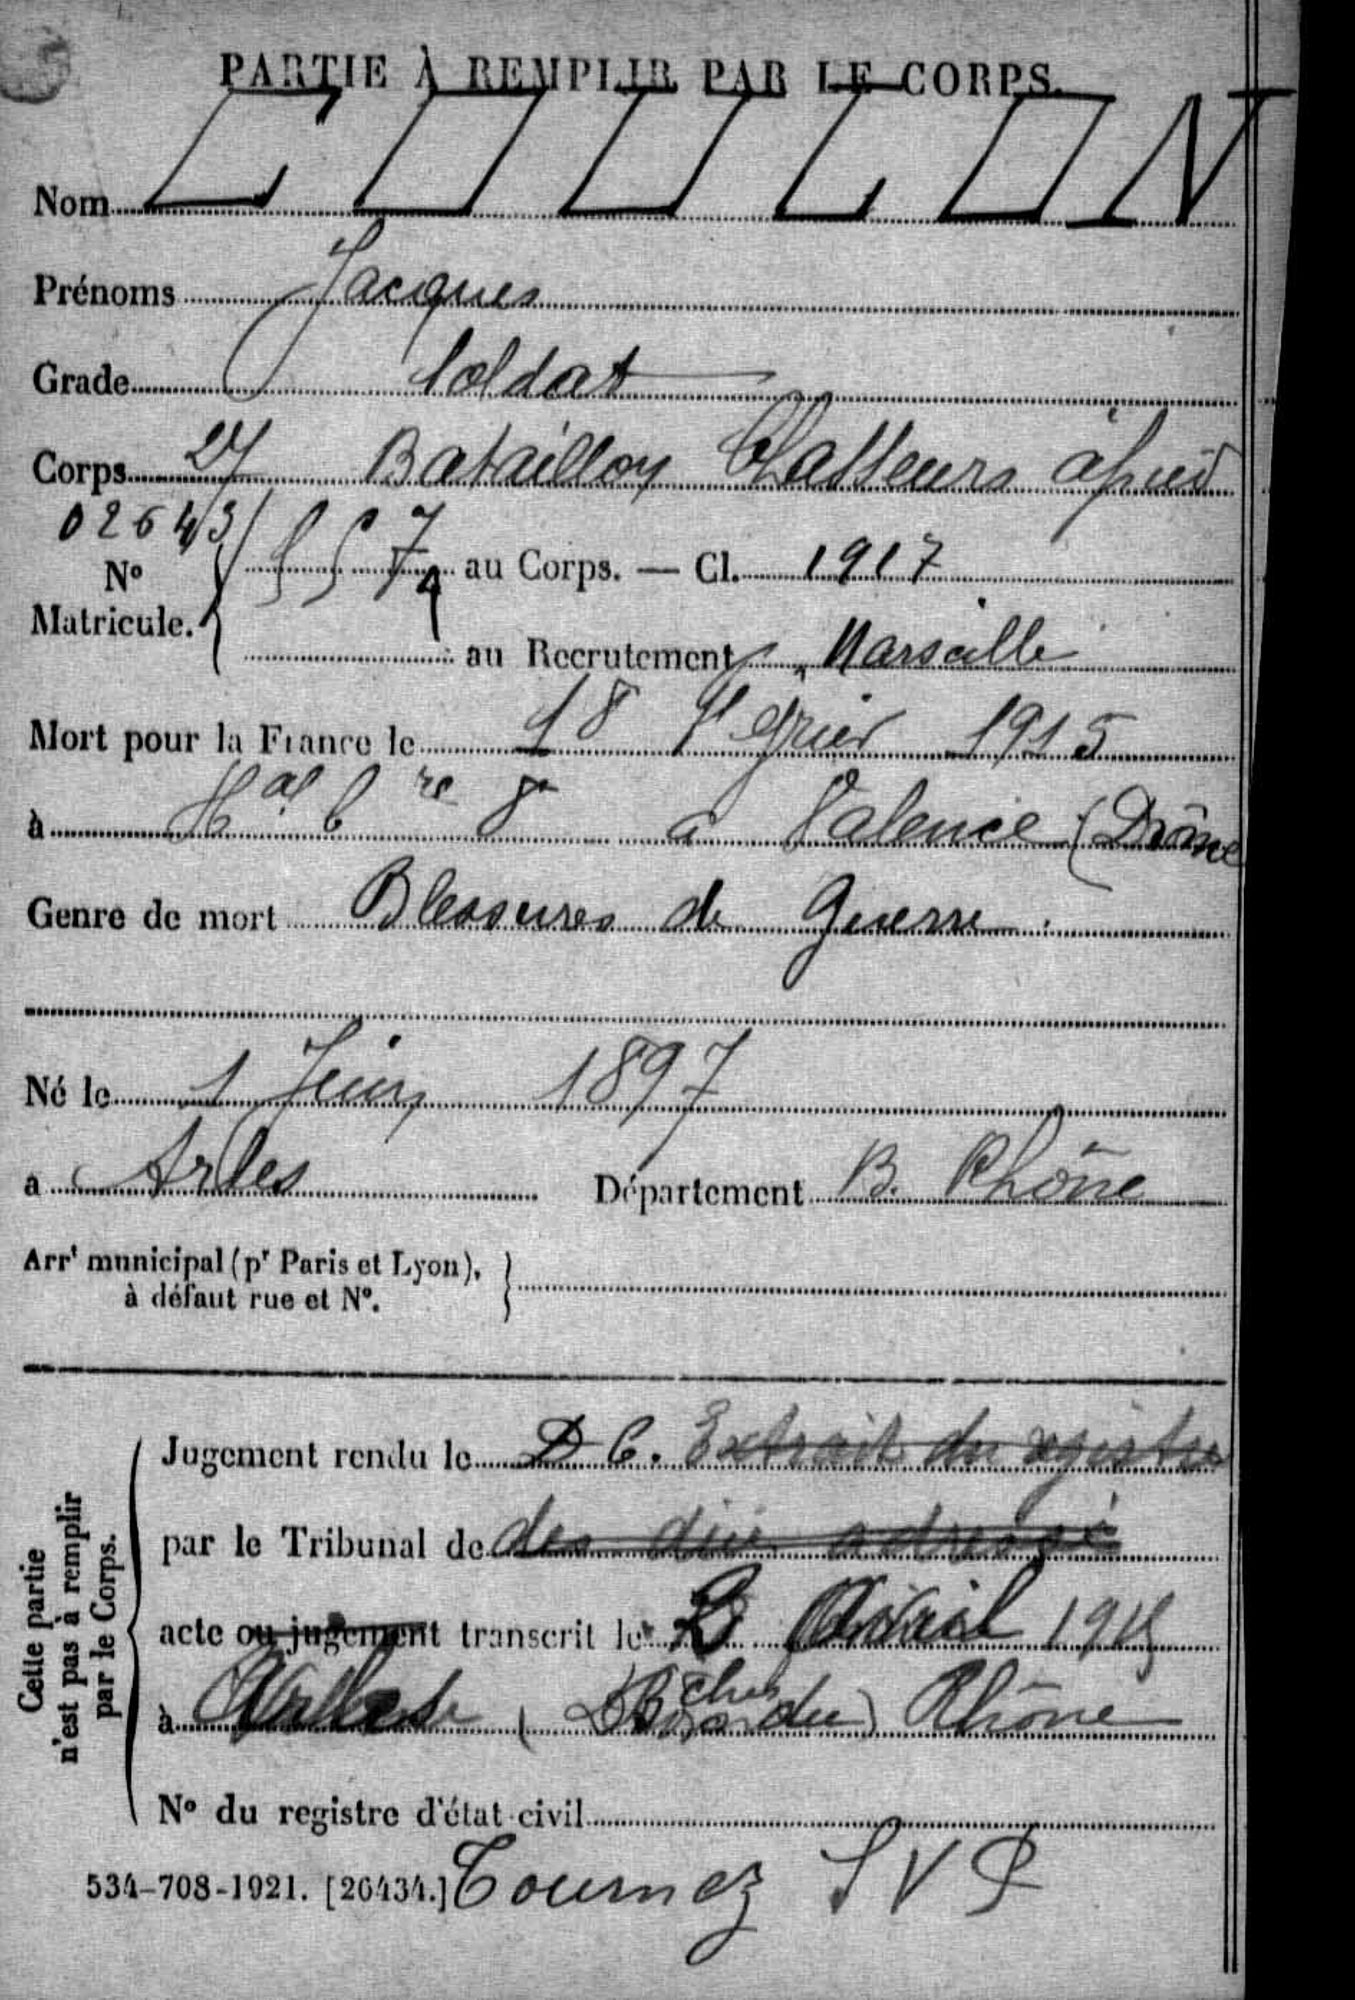 PARTIE À REMPLIR PAR LE CORPS.
Nom COULON
Prénoms Jacques
Grade Soldat
Corps 27 Bataillon Chasseurs à pied
02643
N° Matricule. 557 au Corps. — Cl. 1917
au Recrutement Marseille
Mort pour la France le 18 Février 1915
à Hal bre 8 à Valence (Drôme
Genre de mort Blessures de Guerre
Né le 1 Juin 1897
a Arles Département B. Rhône
Arrt municipal (pr Paris et Lyon),
à défaut rue et N°.
Cette partie
n'est pas à remplir
par le Corps.
Jugement rendu le D C. Extrait du registre
par le Tribunal de des adressé
acte ou jugement transcrit le Avril 1915
à Arles (Bches du) Rhône
N° du registre d'état civil
534-708-1921. [26434.] Tournez S V P